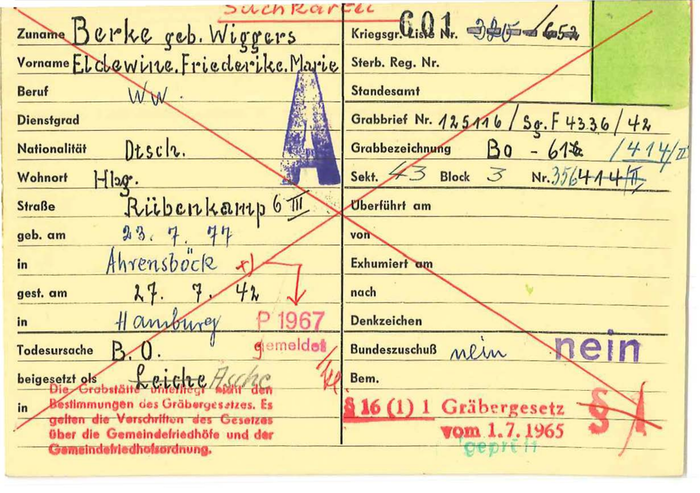 Suchkartei
Zuname Berke geb. Wiggers
Vorname Eldewine, Friederike, Marie
Beruf Ww.
A
Dienstgrad
Nationalität Dtsch.
Wohnort Hbg.
Straße Rübenkamp 6 III
geb. am 23. 7. 77
in Ahrensböck x)
gest. am 27. 7. 42
in Hamburg
P 1967
gemeldet
Todesursache B. O.
beigesetzt als Leiche Asche
in
Die Grabstätte unterliegt nicht den
Bestimmungen des Gräbergesetzes. Es
gelten die Vorschriften des Gesetzes
über die Gemeindefriedhöfe und der
Gemeindefriedhofsordnung.
601
Kriegsgr. Liste Nr. 652
Sterb. Reg. Nr.
Standesamt
Grabbrief Nr. 125116 / Sg. F 4336 / 42
Grabbezeichnung Bo - 61 /414/II
Sekt. 43 Block 3 Nr. 356 414/II
Überführt am
von
Exhumiert am
nach
Denkzeichen
Bundeszuschuß nein nein
Bem.
§ 16 (1) 1 Gräbergesetz
vom 1.7.1965
§ 1
geprüft